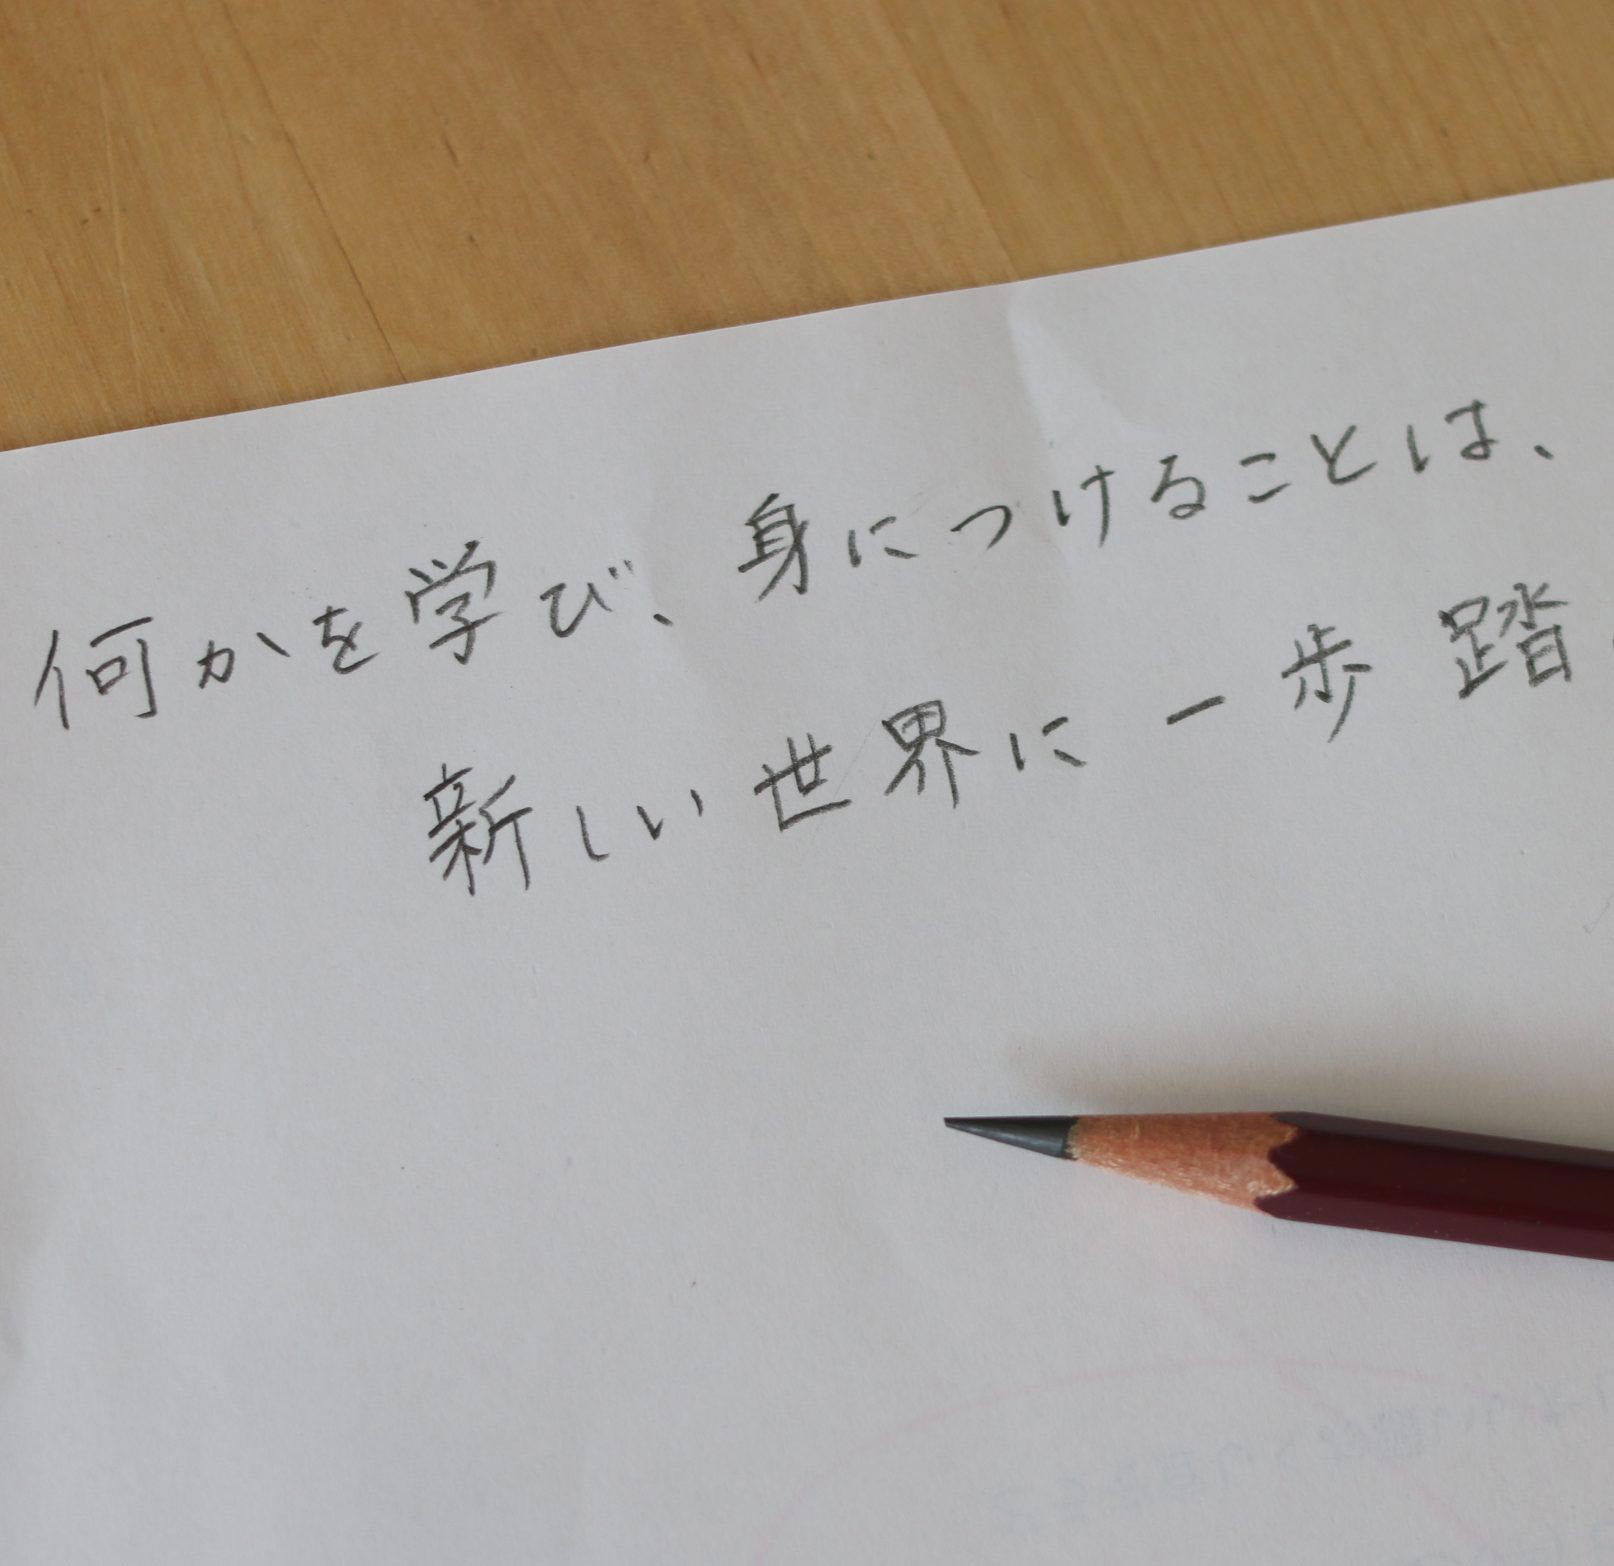 何かを学び、身につけることは、
新しい世界に一歩踏